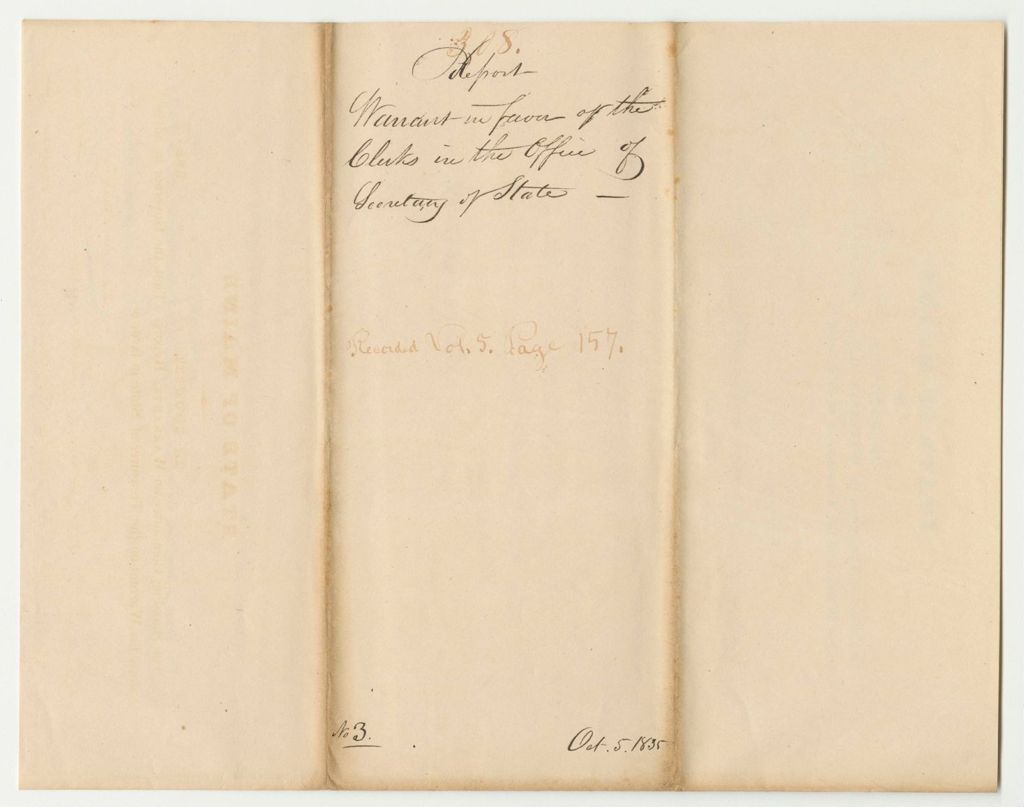 308.
Report
Warrant in favor of the
Clerks in the Office of
Secretary of State —
Recorded Vol. 5. Page 157.
No 3.
Oct. 5. 1835
STATE OF MAINE